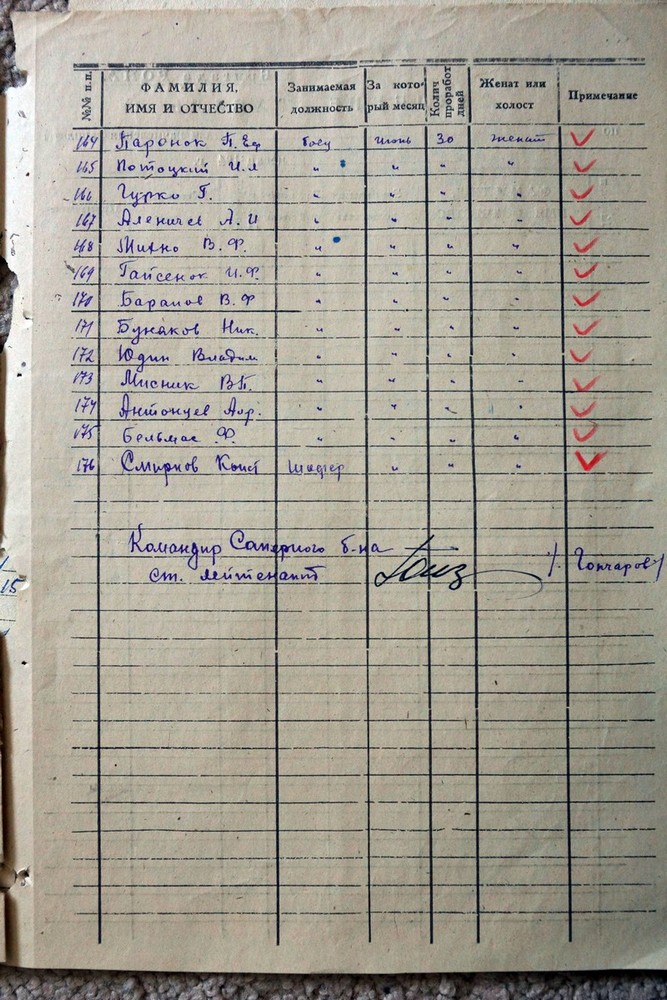 №№ п.п. ФАМИЛИЯ, ИМЯ И ОТЧЕСТВО Занимаемая должность За кото- рый месяц Колич проработ дней Женат или холост Примечание
164 Паронок П. Еф Июнь 30 женат ✓
165 Потоцкий И. " " " ✓
166 Гурко Г. " " " " ✓
167 Аленичев А. И " " " " ✓
168 Михно В. Ф. " " " " ✓
169 Гайсенок И. Ф. " " " " ✓
170 Баранов В. Ф " " " " ✓
171 Бунаков Ник. " " " " ✓
172 Юдин Владим " " " " ✓
173 Мисник В П. " " " " ✓
174 Антонцев " " " " ✓
175 Бельмас Ф. " " " " ✓
176 Смирнов Конст Шофер " " " ✓
Командир Саперного б-на
ст. лейтенант / Гончаров/
15